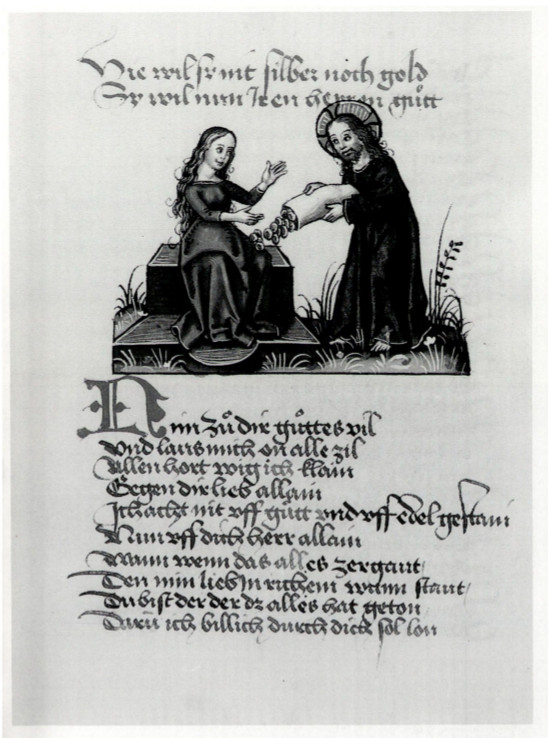 Hie wil sy nit silber noch gold
Sy wil nun Iren herren gůtt
Nim zů dir gůttes vil
Vnd lauss mich on alle zil
Allen hort wig ich klain
Gegen dir lieb allain
Ich acht nit vff gůtt vnd vff edel gestain
Nun vff dich herr allain
Wann wenn das alles zergaut
Den min lieb In richem wunn staut
Du bist der der dz alles hat geton
Darū ich billich durch dich sol lon